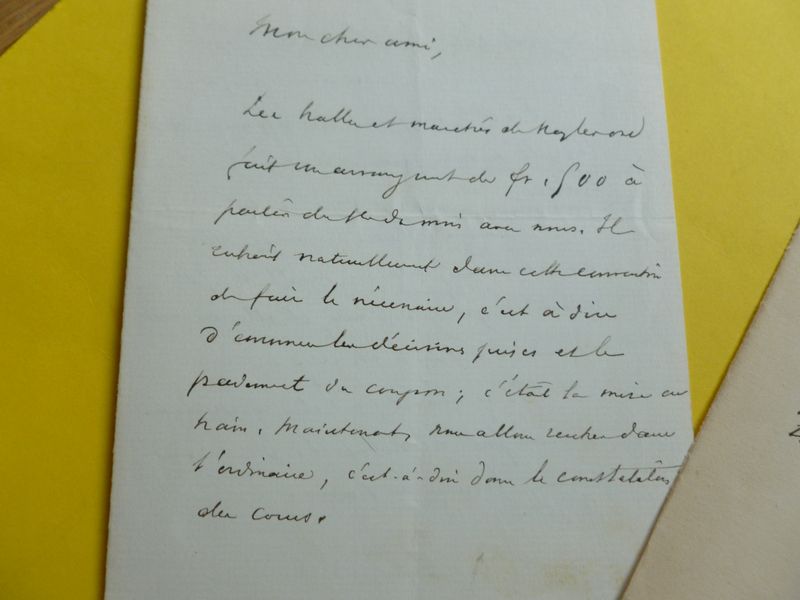 Mon cher ami,
Les halles et marchés de Naples ont
fait un arrangement de fr. 500 à
parler du fin du mois avec nous. Il
entrait naturellement dans cette convention
de faire le nécessaire, c'est à dire
d'annoncer les décisions prises et le
paiement du coupon; c'était la mise en
train. Maintenant, nous allons rentrer dans
l'ordinaire, c'est-à-dire dans la constatation
des cours.